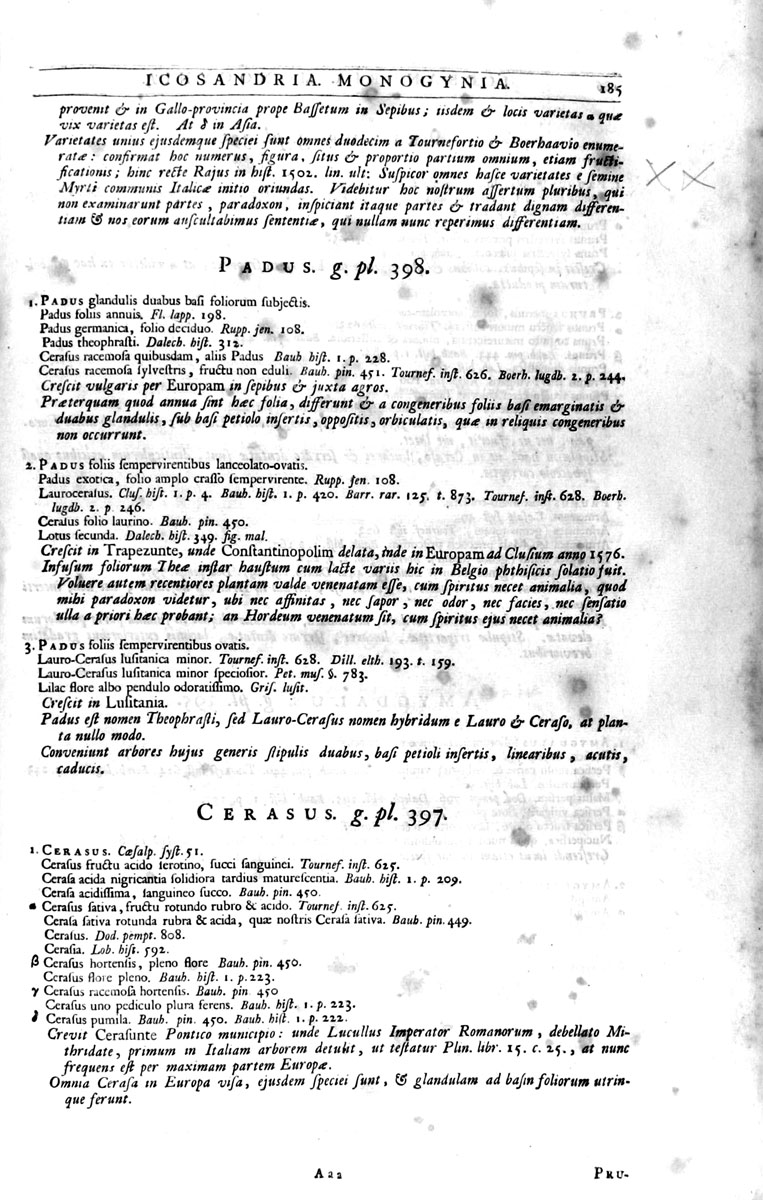 ICOSANDRIA. MONOGYNIA. 185
provenit & in Gallo-provincia prope Bassetum in Sepibus; iisdem & locis varietas α quæ
vix varietas est. At δ in Asia.
Varietates unius ejusdemque speciei sunt omnes duodecim a Tournefortio & Boerhaavio enume-
ratæ: confirmat hoc numerus, figura, situs & proportio partium omnium, etiam fructi-
ficationis; hinc recte Rajus in hist. 1502. lin. ult: Suspicor omnes hasce varietates e semine
Myrti communis Italicæ initio oriundas. Videbitur hoc nostrum assertum pluribus, qui
non examinarunt partes, paradoxon, inspiciant itaque partes & tradant dignam differen-
tiam & nos eorum auscultabimus sententiæ, qui nullam nunc reperimus differentiam.
PADUS. g. pl. 398.
1. PADUS glandulis duabus basi foliorum subjectis.
Padus foliis annuis. Fl. lapp. 198.
Padus germanica, folio deciduo. Rupp. jen. 108.
Padus theophrasti. Dalech. hist. 312.
Cerasus racemosa quibusdam, aliis Padus Bauh. hist. 1. p. 228.
Cerasus racemosa sylvestris, fructu non eduli. Bauh. pin. 451. Tournef. inst. 626. Boerh. lugdb. 2. p. 244.
Crescit vulgaris per Europam in sepibus & juxta agros.
Præterquam quod annua sint hæc folia, differunt & a congeneribus foliis basi emarginatis &
duabus glandulis, sub basi petiolo insertis, oppositis, orbiculatis, quæ in reliquis congeneribus
non occurrunt.
2. PADUS foliis sempervirentibus lanceolato-ovatis.
Padus exotica, folio amplo crasso sempervirente. Rupp. jen. 108.
Laurocerasus. Clus. hist. 1. p. 4. Bauh. hist. 1. p. 420. Barr. rar. 125. t. 873. Tournef. inst. 628. Boerh.
lugdb. 2. p. 246.
Cerasus folio laurino. Bauh. pin. 450.
Lotus secunda. Dalech. hist. 349. fig. mal.
Crescit in Trapezunte, unde Constantinopolim delata, inde in Europam ad Clusium anno 1576.
Infusum foliorum Theæ instar haustum cum lacte variis hic in Belgio phthisicis solatio fuit.
Voluere autem recentiores plantam valde venenatam esse, cum spiritus necet animalia, quod
mihi paradoxon videtur, ubi nec affinitas, nec sapor, nec odor, nec facies, nec sensatio
ulla a priori hæc probant; an Hordeum venenatum sit, cum spiritus ejus necet animalia?
3. PADUS foliis sempervirentibus ovatis.
Lauro-Cerasus lusitanica minor. Tournef. inst. 628. Dill. elth. 193. t. 159.
Lauro-Cerasus lusitanica minor speciosior. Pet. mus. §. 783.
Lilac flore albo pendulo odoratissimo. Gris. lusit.
Crescit in Lusitania.
Padus est nomen Theophrasti, sed Lauro-Cerasus nomen hybridum e Lauro & Ceraso, at plan-
ta nullo modo.
Conveniunt arbores hujus generis stipulis duabus, basi petioli insertis, linearibus, acutis,
caducis.
CERASUS. g. pl. 397.
1. CERASUS. Cæsalp. syst. 51.
Cerasus fructu acido serotino, succi sanguinei. Tournef. inst. 625.
Cerasa acida nigricantia solidiora tardius maturescentia. Bauh. hist. 1. p. 209.
Cerasa acidissima, sanguineo succo. Bauh. pin. 450.
α Cerasus sativa, fructu rotundo rubro & acido. Tournef. inst. 625.
Cerasa sativa rotunda rubra & acida, quæ nostris Cerasa sativa. Bauh. pin. 449.
Cerasus. Dod. pempt. 808.
Cerasia. Lob. hist. 592.
β Cerasus hortensis, pleno flore Bauh. pin. 450.
Cerasus flore pleno. Bauh. hist. 1. p. 223.
γ Cerasus racemosa hortensis. Bauh. pin 450
Cerasus uno pediculo plura ferens. Bauh. hist. 1. p. 223.
δ Cerasus pumila. Bauh. pin. 450. Bauh. hist. 1. p. 222.
Crevit Cerasunte Pontico municipio: unde Lucullus Imperator Romanorum, debellato Mi-
thridate, primum in Italiam arborem detulit, ut testatur Plin. libr. 15. c. 25., at nunc
frequens est per maximam partem Europæ.
Omnia Cerasa in Europa visa, ejusdem speciei sunt, & glandulam ad basin foliorum utrin-
que ferunt.
Aa2 PRU-